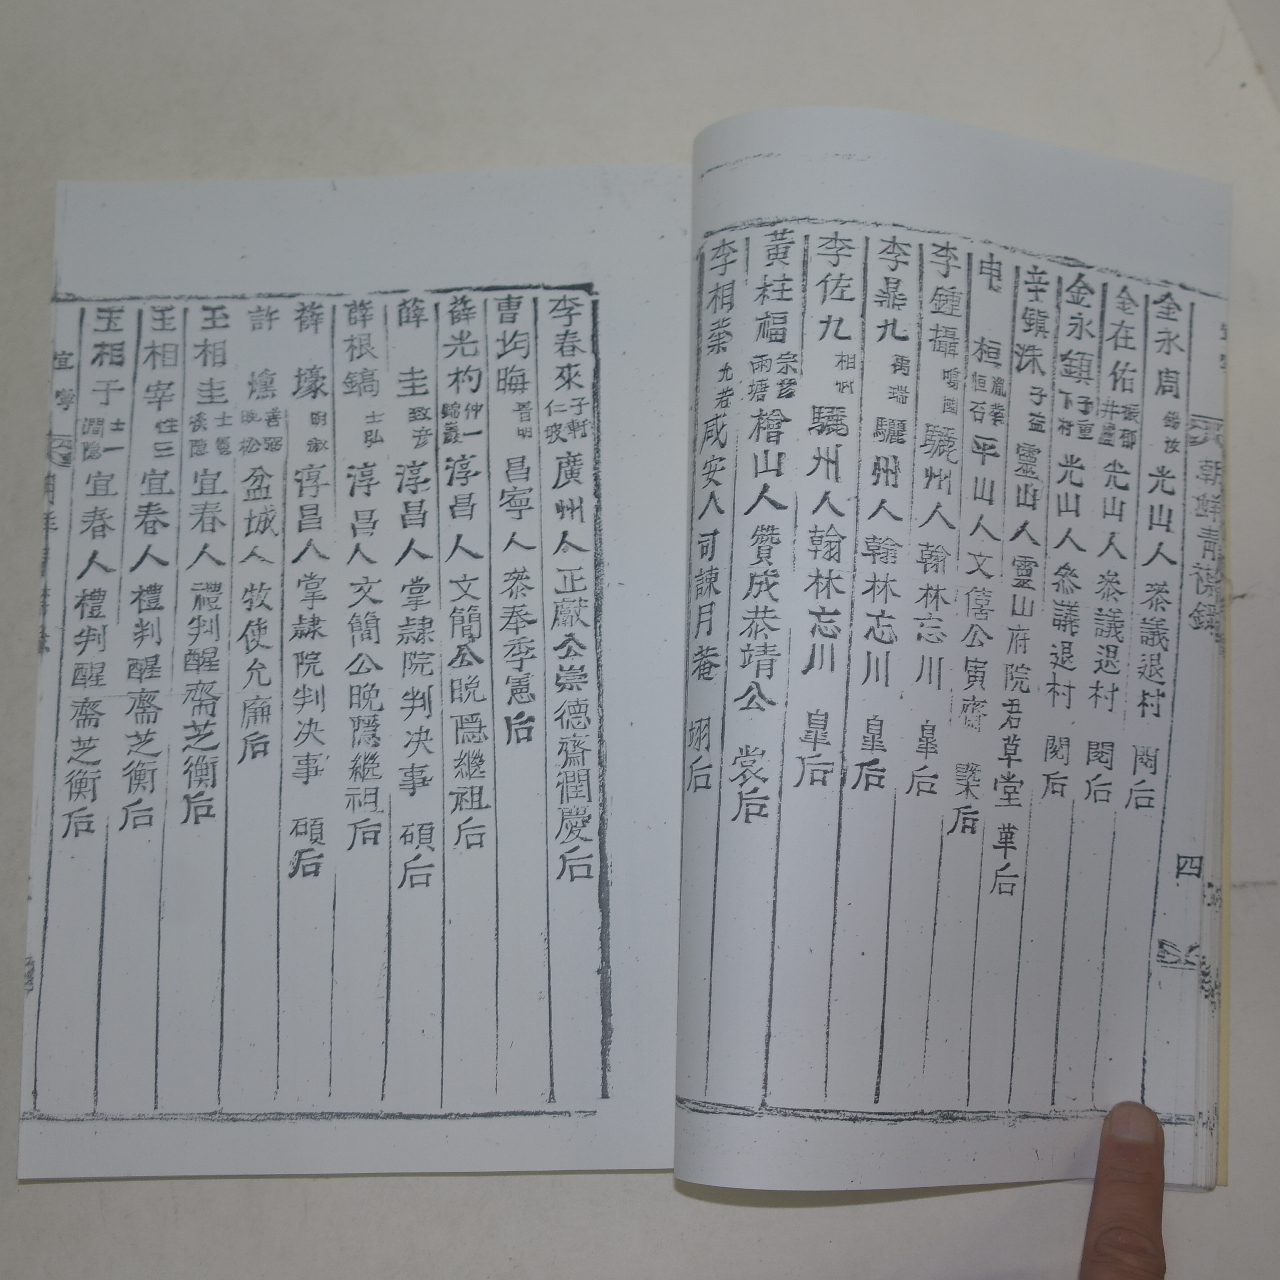 朝鮮青襟錄
四
金永周 光山人 叅議退村 閱后
金在佑 振卿 井廬 光山人 叅議退村 閱后
金永鎮 子重 下村 光山人 叅議退村 閱后
辛鎮洙 子益 靈山人 靈山府院君草堂 革后
申 桓 胤肇 恒石 平山人 文僖公寅齋 槩后
李鍾攝 鳴國 驪州人 翰林忘川 皐后
李鼎九 禹瑞 驪州人 翰林忘川 皐后
李佐九 相 驪州人 翰林忘川 皐后
黃柱福 雨塘 檜山人 贊成恭靖公 裳后
李相業 允若 咸安人 司諫月菴 翊后
李春來 子軒 仁坡 廣州人 正獻公崇德齋潤慶后
曹均晦 晋明 昌寧人 叅奉季憲后
薛光杓 仲一 錦巖 淳昌人 文簡公晩隱繼祖后
薛 圭 致彦 淳昌人 掌隷院判决事 碩后
薛根鎬 士弘 淳昌人 文簡公晩隱繼祖后
薛 壕 明淑 淳昌人 掌隷院判决事 碩后
許 善 晩松 盆城人 牧使允廉后
玉相圭 士 溪隱 宜春人 禮判醒齋芝衡后
玉相宰 性三 宜春人 禮判醒齋芝衡后
玉相于 士一 澗隱 宜春人 禮判醒齋芝衡后
宜寧